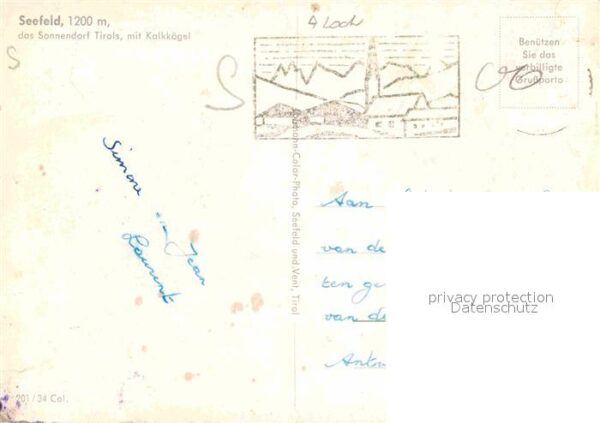 Seefeld, 1200 m,
das Sonnendorf Tirols, mit Kalkkögel
4 Loch
Benützen
Sie das
verbilligte
Grußporto
S
S
Simone
en Jean
Laurent
-Color-Photo, Seefeld und Vent, Tirol
Aan
van de
ten ge
van de
privacy protection
Datenschutz
201/34 Col.